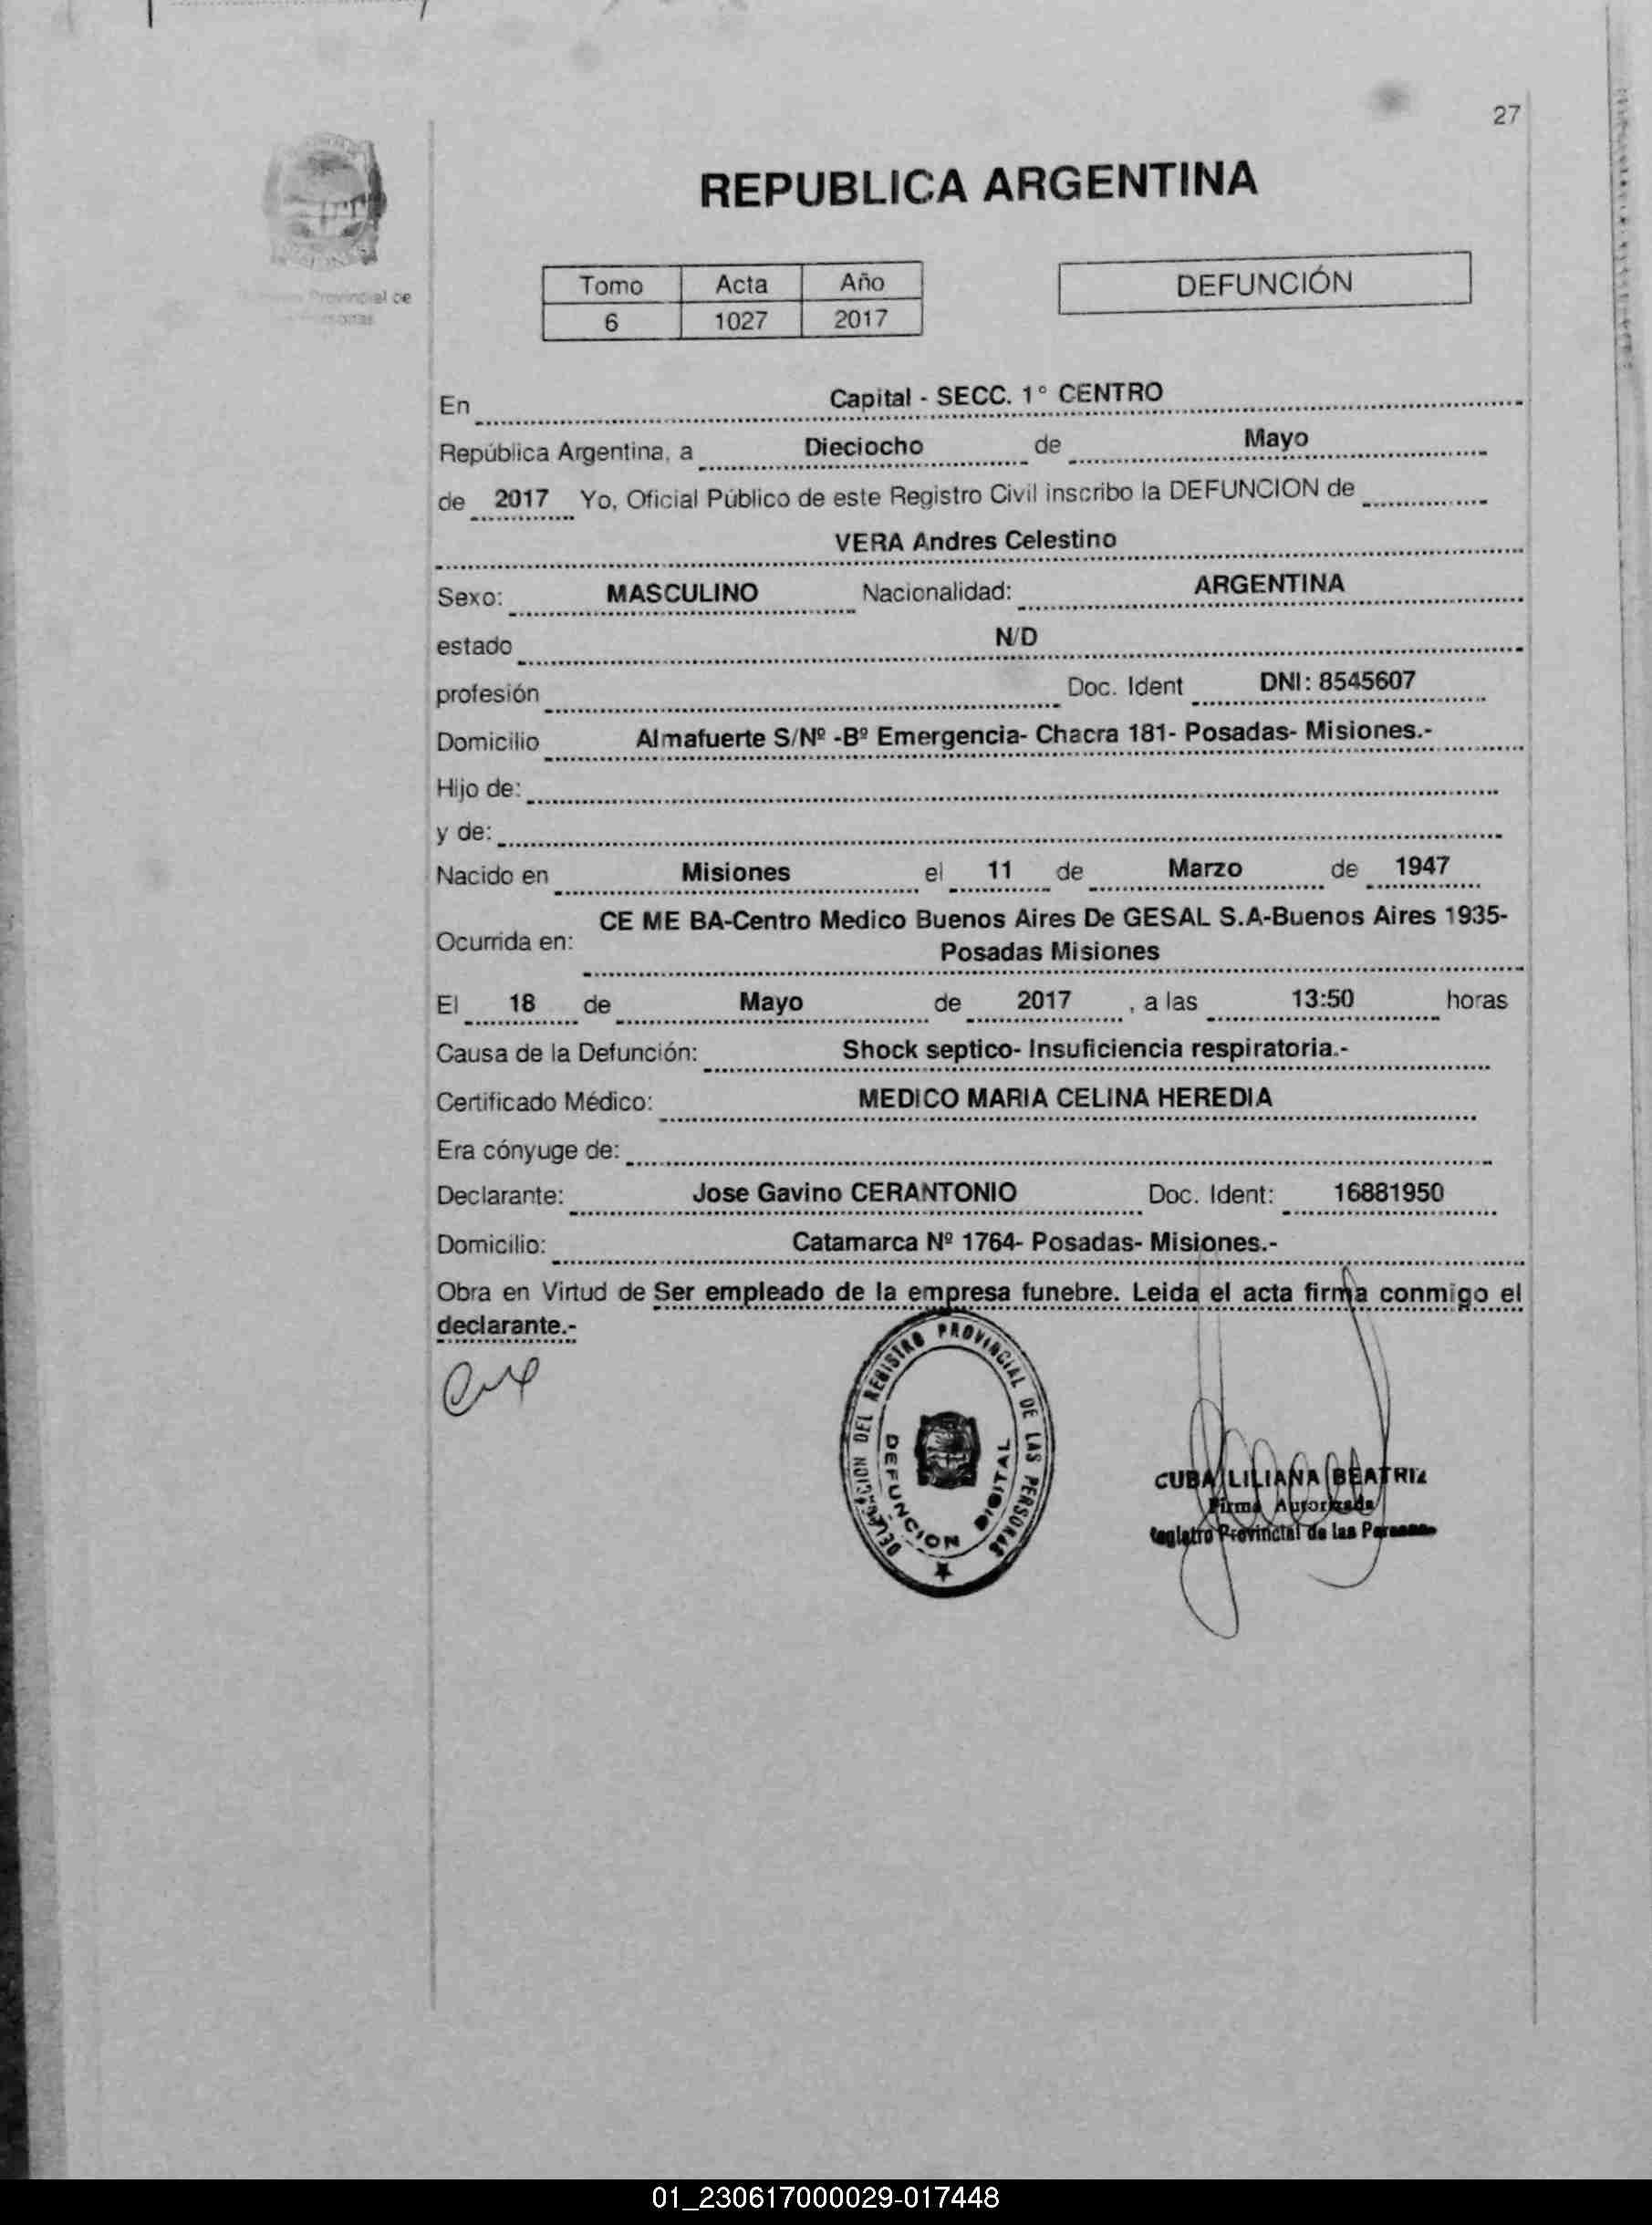 27
REPUBLICA ARGENTINA
Tomo Acta Año
6 1027 2017
DEFUNCIÓN
Provincial de
En Capital - SECC. 1° CENTRO
República Argentina, a Dieciocho de Mayo
de 2017 Yo, Oficial Público de este Registro Civil inscribo la DEFUNCION de
VERA Andres Celestino
Sexo: MASCULINO Nacionalidad: ARGENTINA
estado N/D
profesión Doc. Ident DNI: 8545607
Domicilio Almafuerte S/Nº -Bº Emergencia- Chacra 181- Posadas- Misiones.-
Hijo de:
y de:
Nacido en Misiones el 11 de Marzo de 1947
CE ME BA-Centro Medico Buenos Aires De GESAL S.A-Buenos Aires 1935-
Ocurrida en: Posadas Misiones
El 18 de Mayo de 2017 , a las 13:50 horas
Causa de la Defunción: Shock septico- Insuficiencia respiratoria.-
Certificado Médico: MEDICO MARIA CELINA HEREDIA
Era cónyuge de:
Declarante: Jose Gavino CERANTONIO Doc. Ident: 16881950
Domicilio: Catamarca Nº 1764- Posadas- Misiones.-
Obra en Virtud de Ser empleado de la empresa funebre. Leida el acta firma conmigo el
declarante.-
DEL REGISTRO PROVINCIAL DE LAS PERSONAS
DEFUNCION DIGITAL
CUBA LILIANA BEATRIZ
Firma Autorizada
Registro Provincial de las Personas
01_230617000029-017448